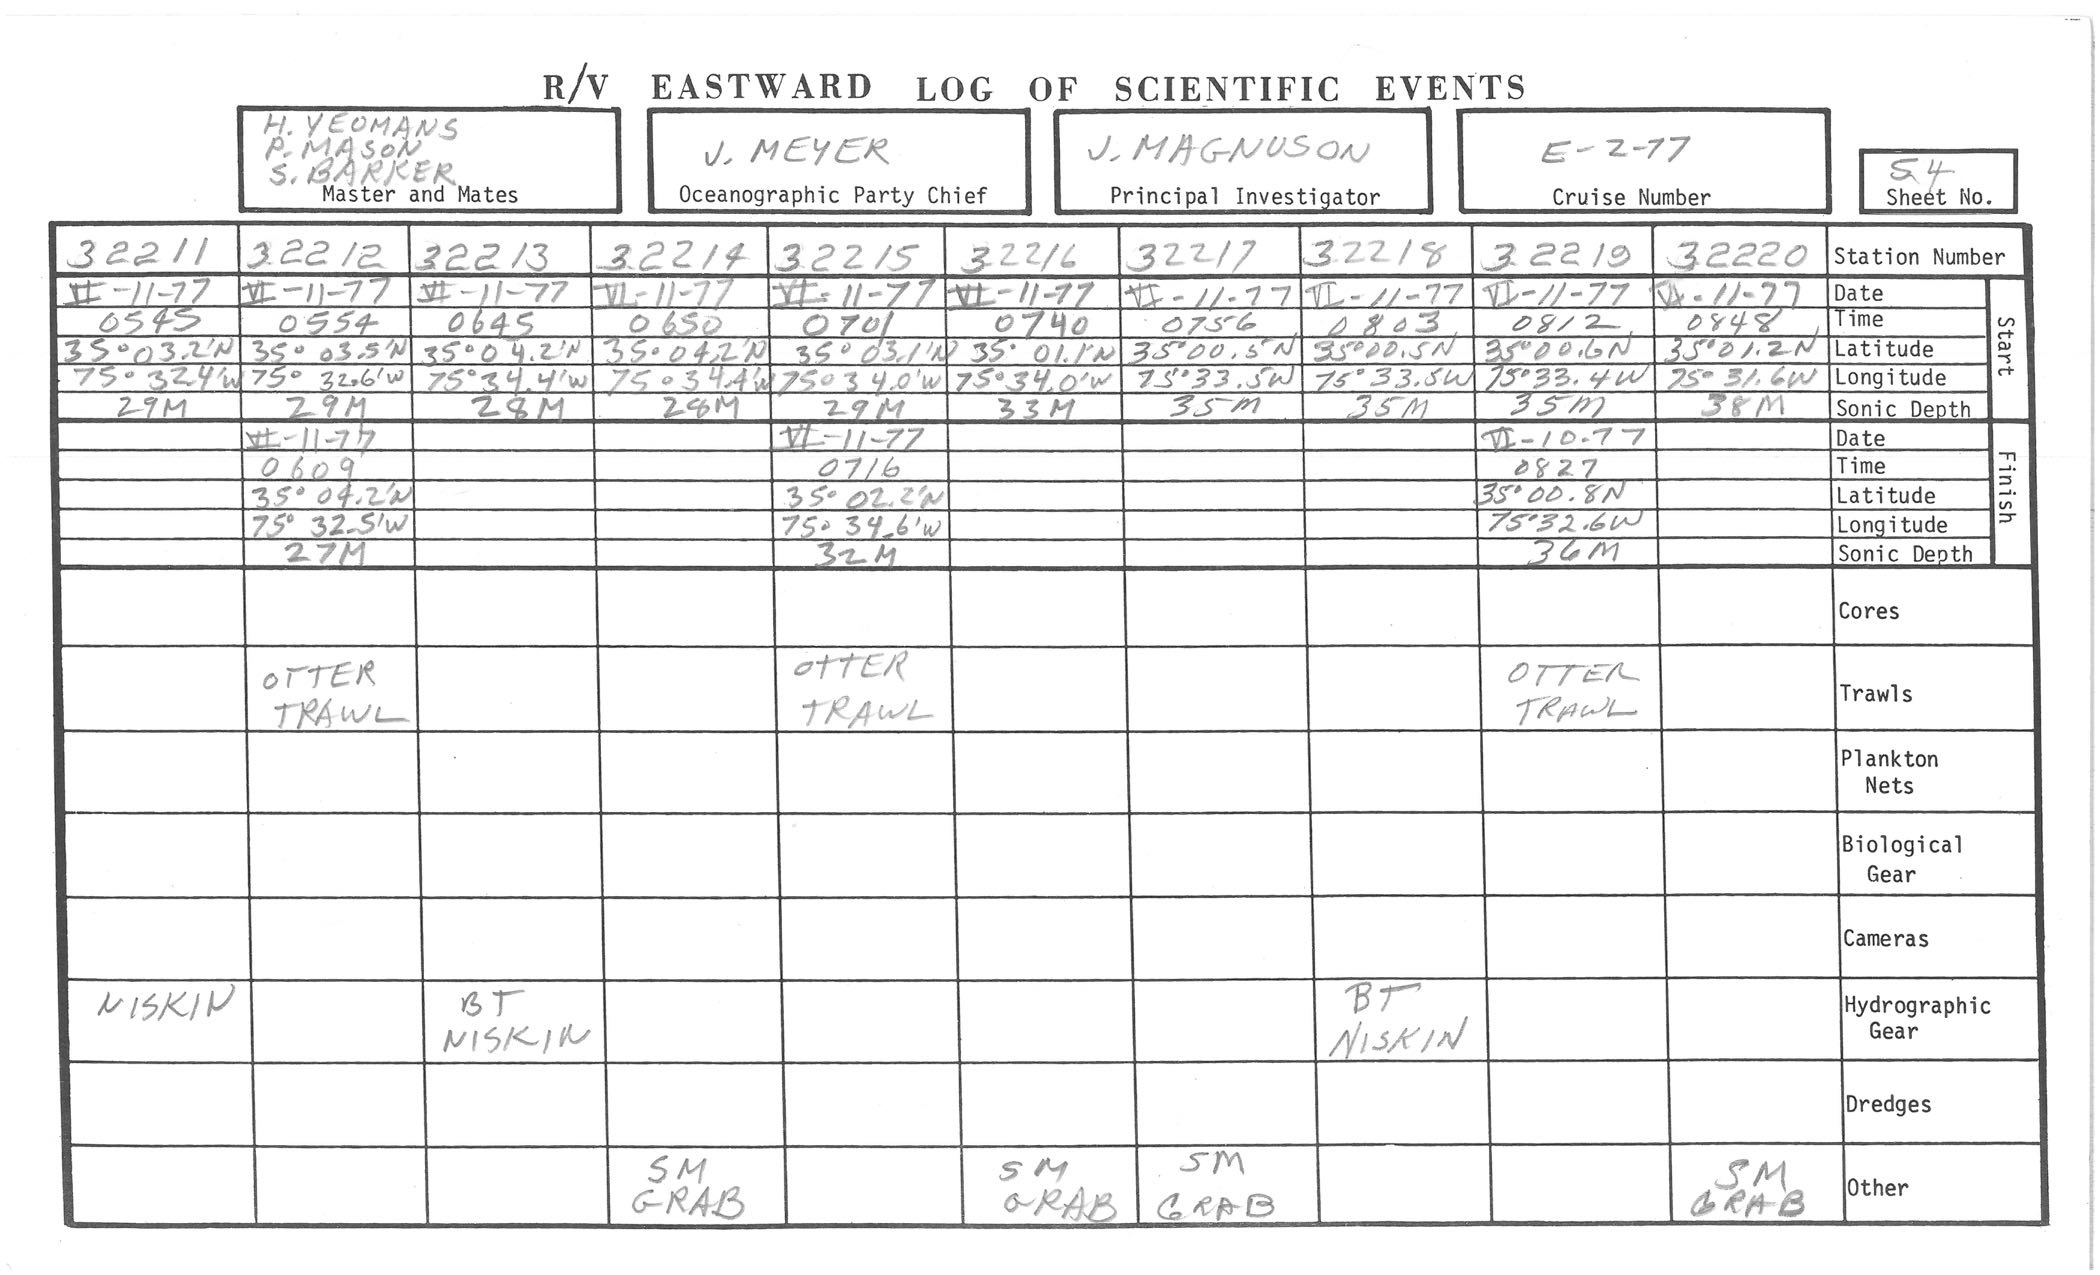 R/V EASTWARD LOG OF SCIENTIFIC EVENTS
H. YEOMANS
P. MASON
S. BARKER
Master and Mates
J. MEYER
Oceanographic Party Chief
J. MAGNUSON
Principal Investigator
E-2-77
Cruise Number
54
Sheet No.
32211 32212 32213 32214 32215 32216 32217 32218 32219 32220 Station Number
VI-11-77 VI-11-77 VI-11-77 VI-11-77 VI-11-77 VI-11-77 VI-11-77 VI-11-77 VI-11-77 VI-11-77 Date
0545 0554 0645 0650 0701 0740 0756 0803 0812 0848 Time
35°03.2'N 35°03.5'N 35°04.2'N 35°04.2'N 35°03.1'N 35°01.1'N 35°00.5N 35°00.5N 35°00.6N 35°01.2N Latitude
75°32.4'W 75°32.6'W 75°34.4'W 75°34.4'W 75°34.0'W 75°34.0'W 75°33.5W 75°33.5W 75°33.4W 75°31.6W Longitude
29M 29M 28M 28M 29M 33M 35M 35M 35M 38M Sonic Depth
Start
VI-11-77 VI-11-77 VI-10-77 Date
0609 0716 0827 Time
35°04.2'N 35°02.2'N 35°00.8N Latitude
75°32.5'W 75°34.6'W 75°32.6W Longitude
27M 32M 36M Sonic Depth
Finish
Cores
OTTER OTTER OTTER
TRAWL TRAWL TRAWL
Trawls
Plankton
Nets
Biological
Gear
Cameras
NISKIN BT BT Hydrographic
NISKIN NISKIN Gear
Dredges
SM SM SM SM
GRAB GRAB GRAB GRAB
Other